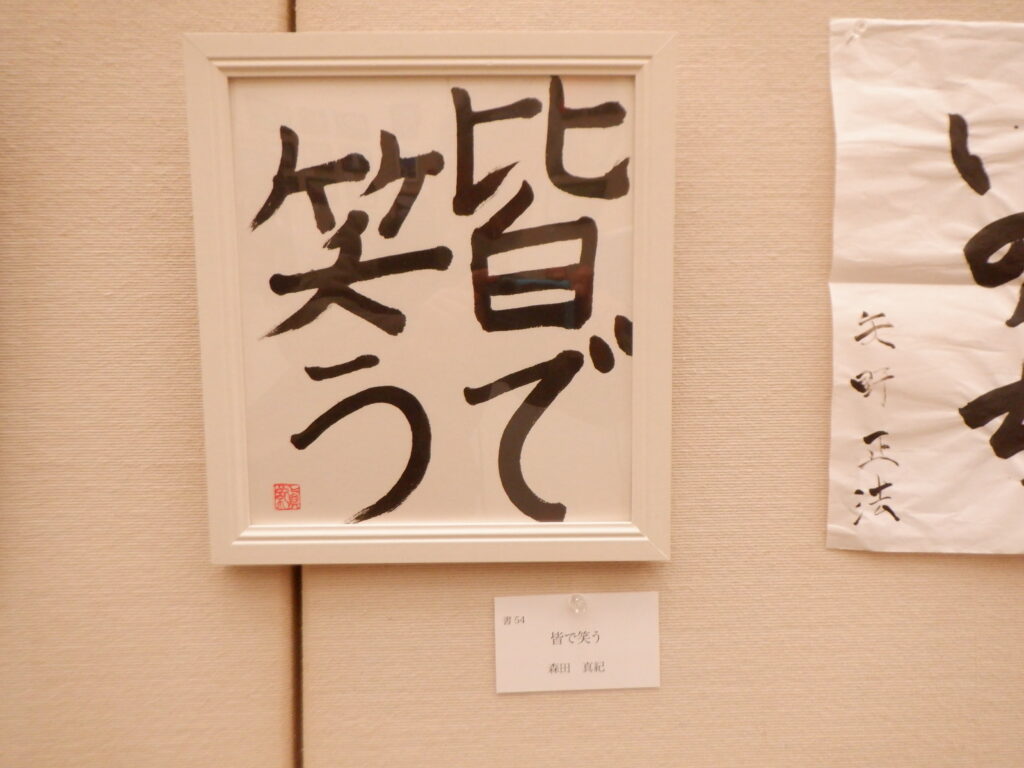 皆で
笑う
書54
皆で笑う
森田 真紀
矢野正法